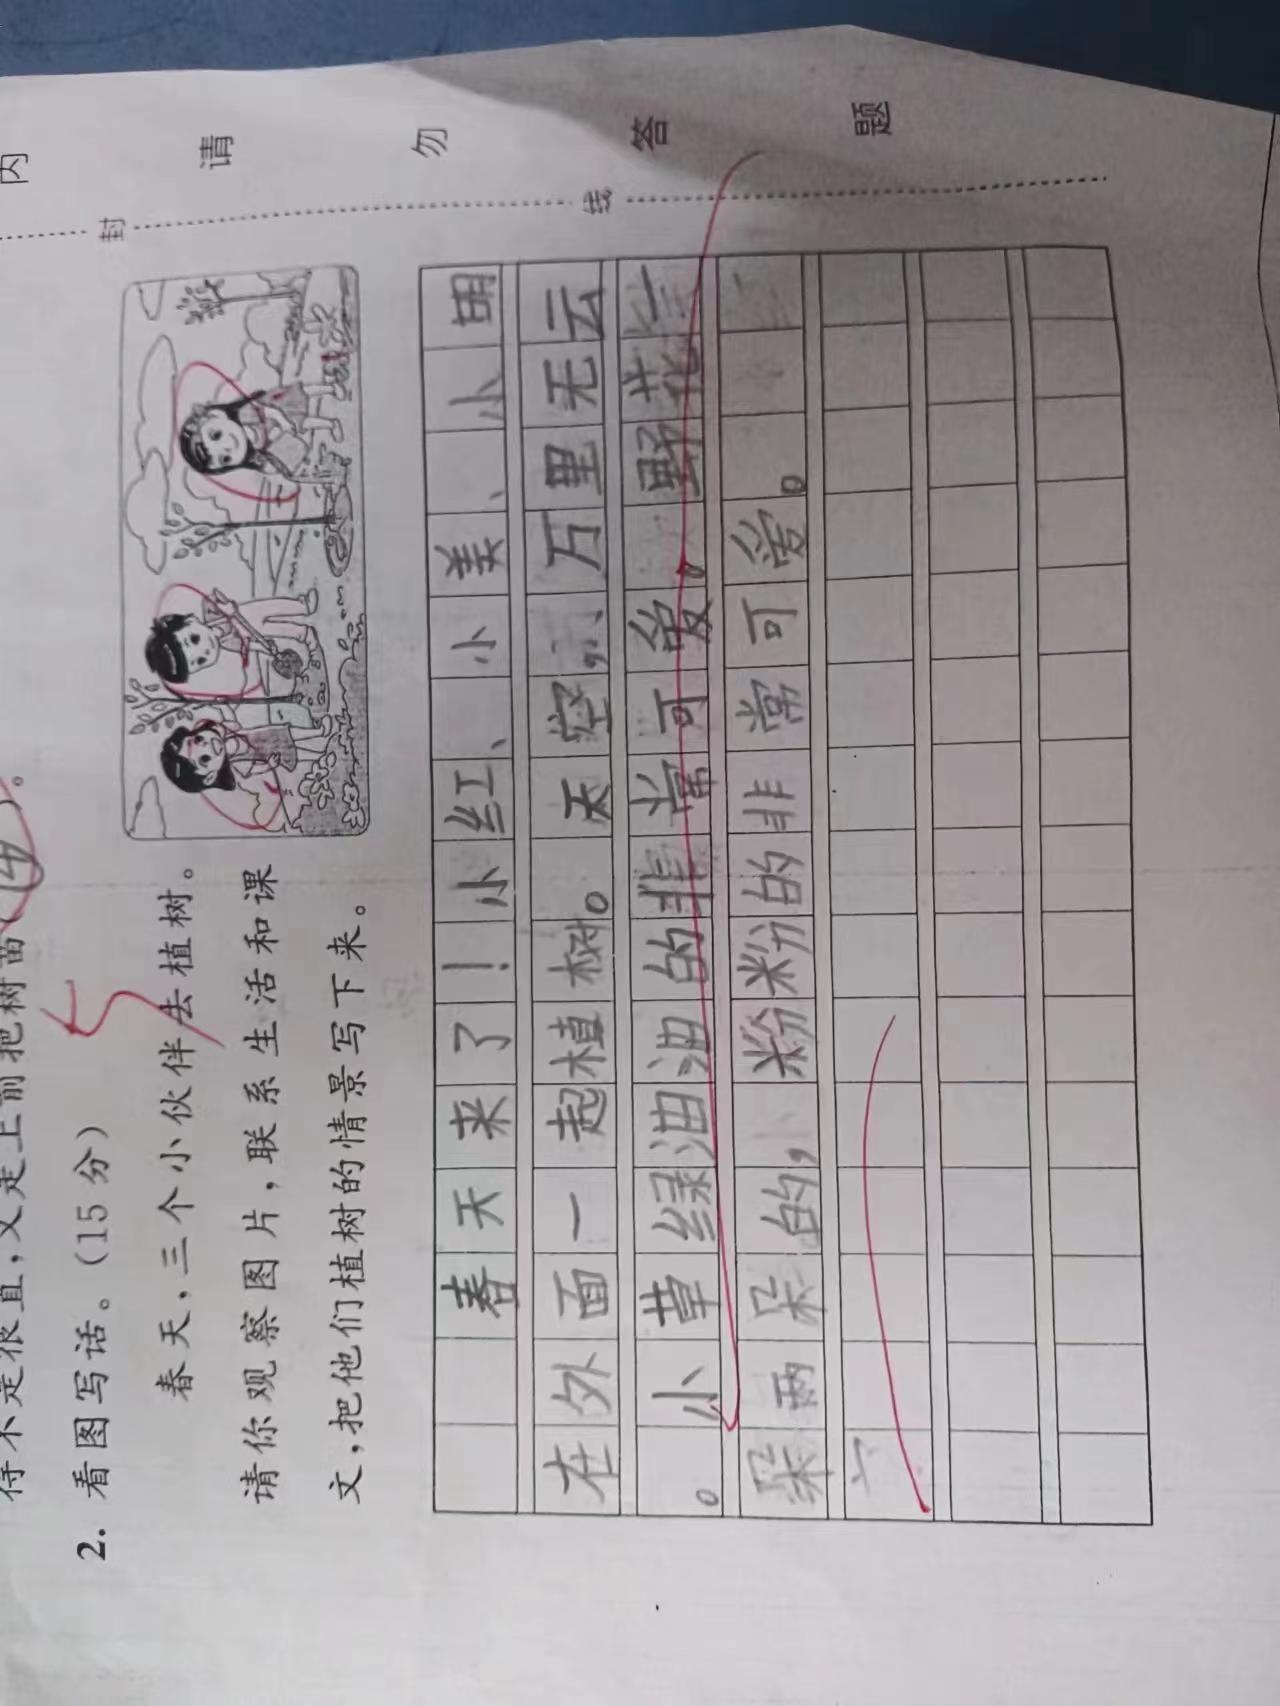 得不是很直，又走上前把树苗（④）。
2. 看图写话。（15 分）
5
春天，三个小伙伴去植树。
请你观察图片，联系生活和课
文，把他们植树的情景写下来。
春天来了！小红、小美、小明
在外面一起植树。天空，万里无云
。小草绿油油的非常可爱。野花一
朵两朵的，粉粉的非常可爱。
内
封
请
勿
线
答
题